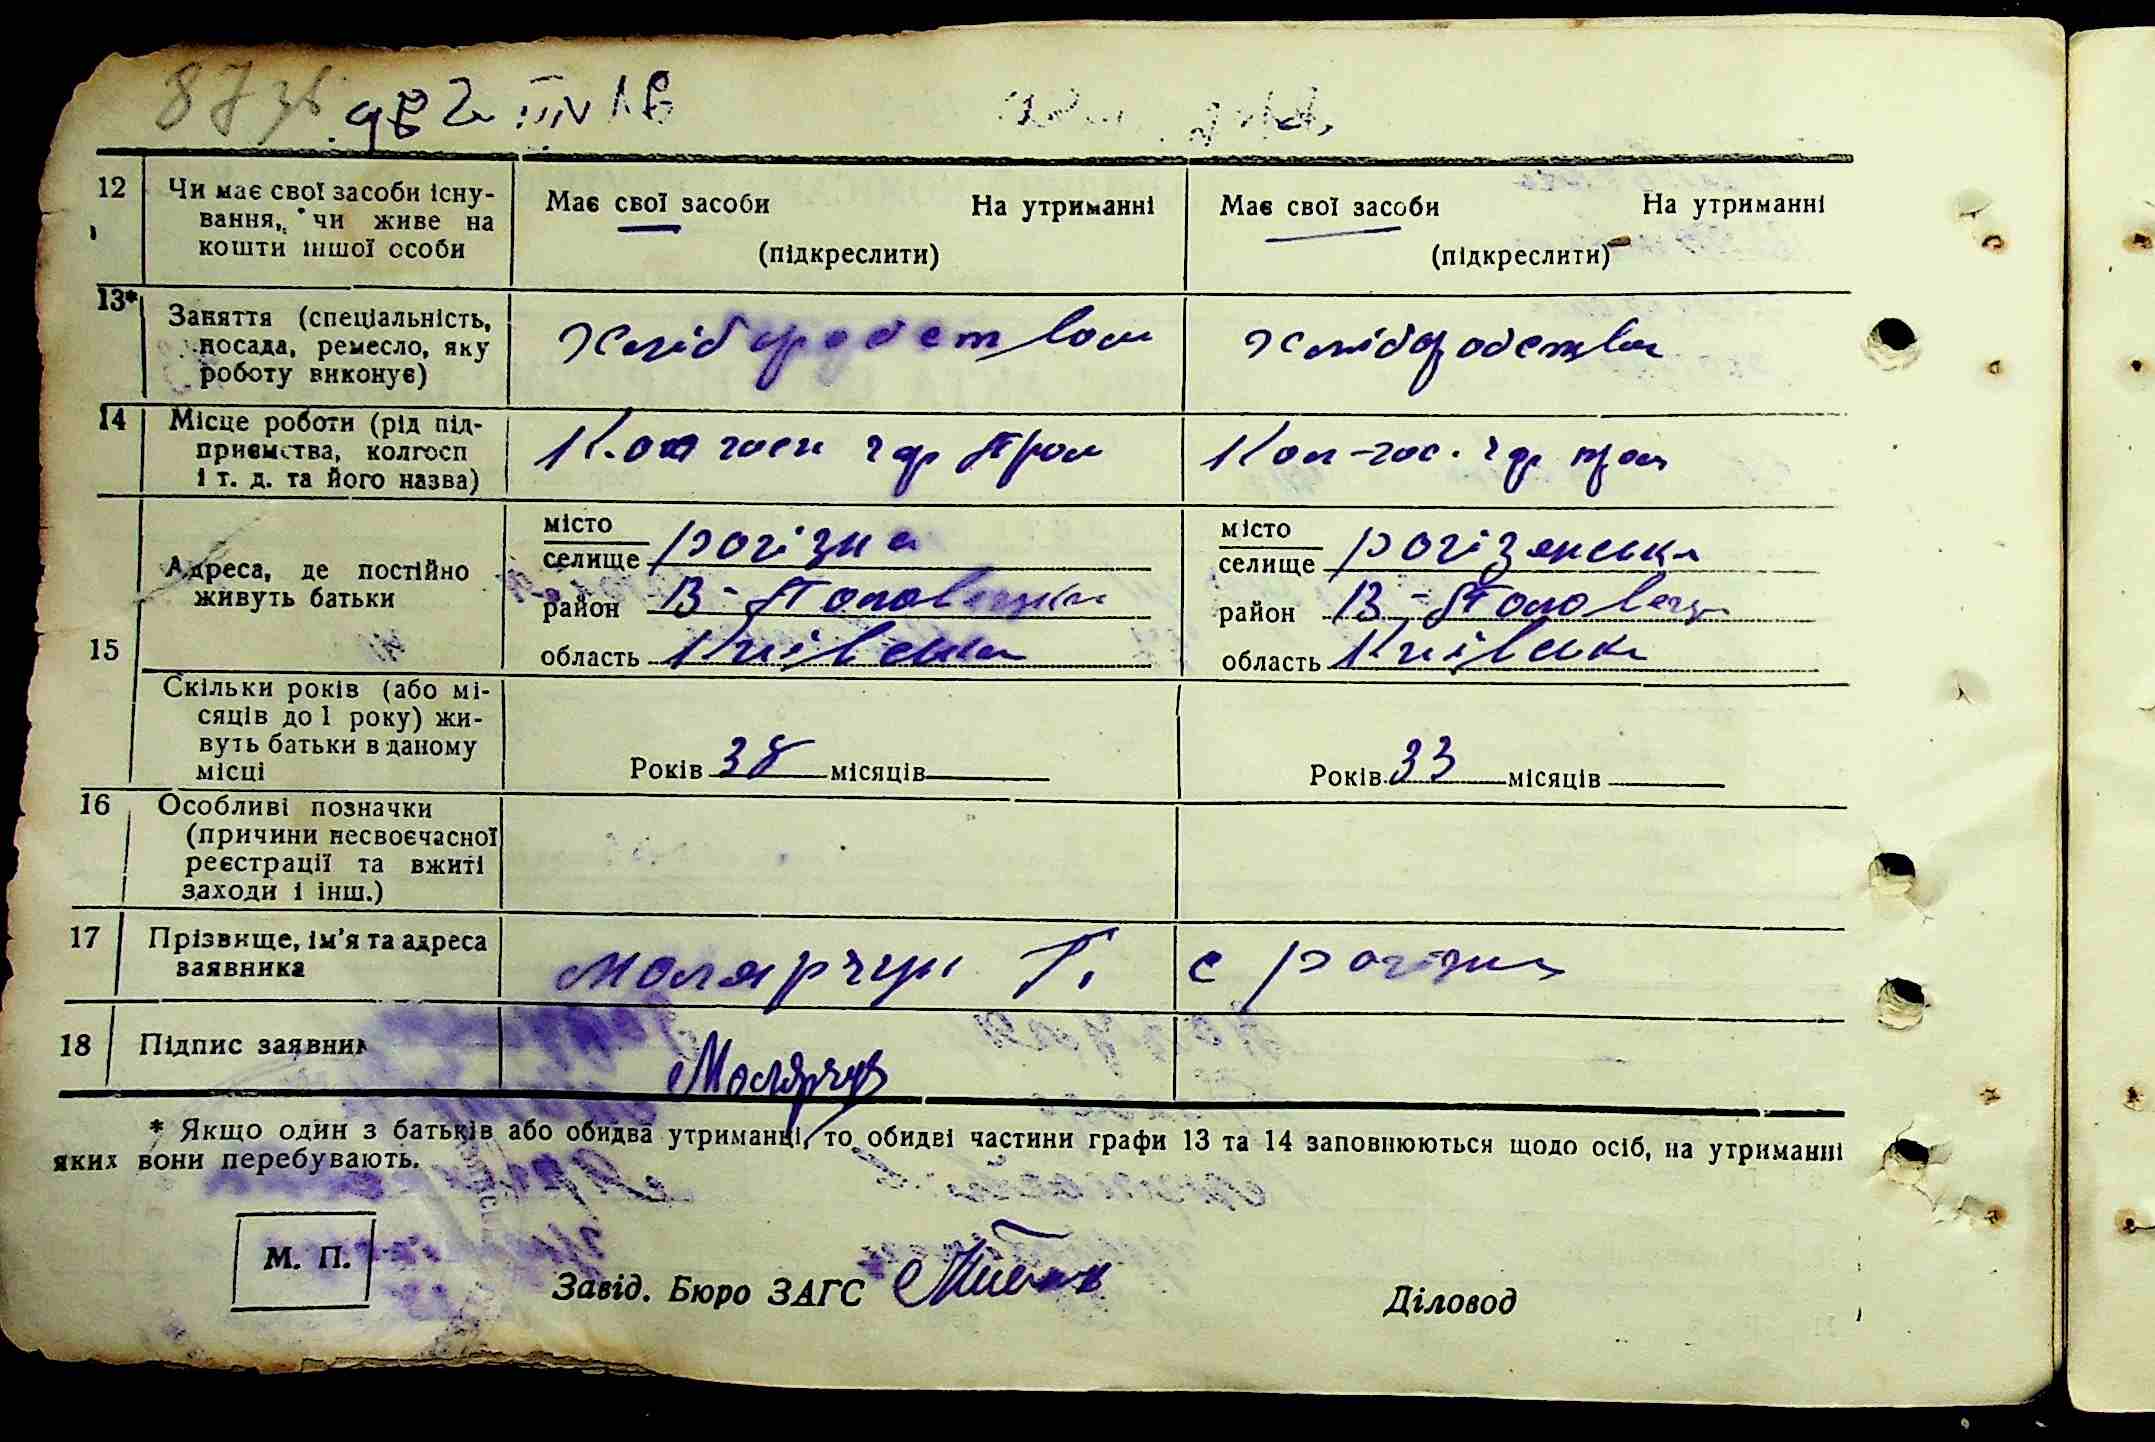 87 зв
12 Чи має свої засоби існу-
вання, чи живе на
кошти іншої особи
Має свої засоби На утриманні
(підкреслити)
Має свої засоби На утриманні
(підкреслити)
13* Заняття (спеціальність,
посада, ремесло, яку
роботу виконує)
Хліборобством
Хліборобством
14 Місце роботи (рід під-
приємства, колгосп
і т. д. та його назва)
15 Адреса, де постійно
живуть батьки
місто
селище Рогізна
район В-Половецький
область Київська
місто
селище Рогізянська
район В-Половецьк
область Київська
Скільки років (або мі-
сяців до 1 року) жи-
вуть батьки в даному
місці
Років 38 місяців
Років 33 місяців
16 Особливі позначки
(причини несвоєчасної
реєстрації та вжиті
заходи і інш.)
17 Прізвище, ім'я та адреса
заявника
Молярчук Г. с Рогізна
18 Підпис заявник
Молярчук
* Якщо один з батьків або обидва утриманці, то обидві частини графи 13 та 14 заповнюються щодо осіб, на утриманні
яких вони перебувають.
М. П.
Завід. Бюро ЗАГС
Діловод